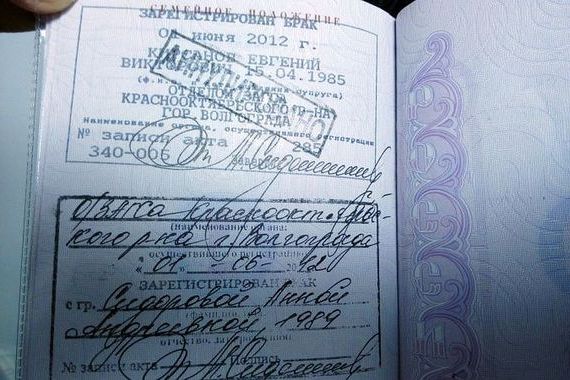 СЕМЕЙНОЕ ПОЛОЖЕНИЕ
ЗАРЕГИСТРИРОВАН БРАК
01 июня 2012 г.
ЕВГЕНИЙ
15.04.1985
ОТДЕЛОМ
КРАСНООКТЯБРЬСКОГО Р-НА
ГОР. ВОЛГОГРАДА
наименование органа, осуществившего регистрацию
№ записи акта 285
340-006
ОЗАГСа Краснооктябрьс-
кого р-на г. Волгограда
(наименование органа,
осуществившего регистрацию)
"01" - 06 - 2012
ЗАРЕГИСТРИРОВАН БРАК
с гр. Сидоровой Анной
Андреевной, 1989
отчество, дата
№ записи акта Подпись